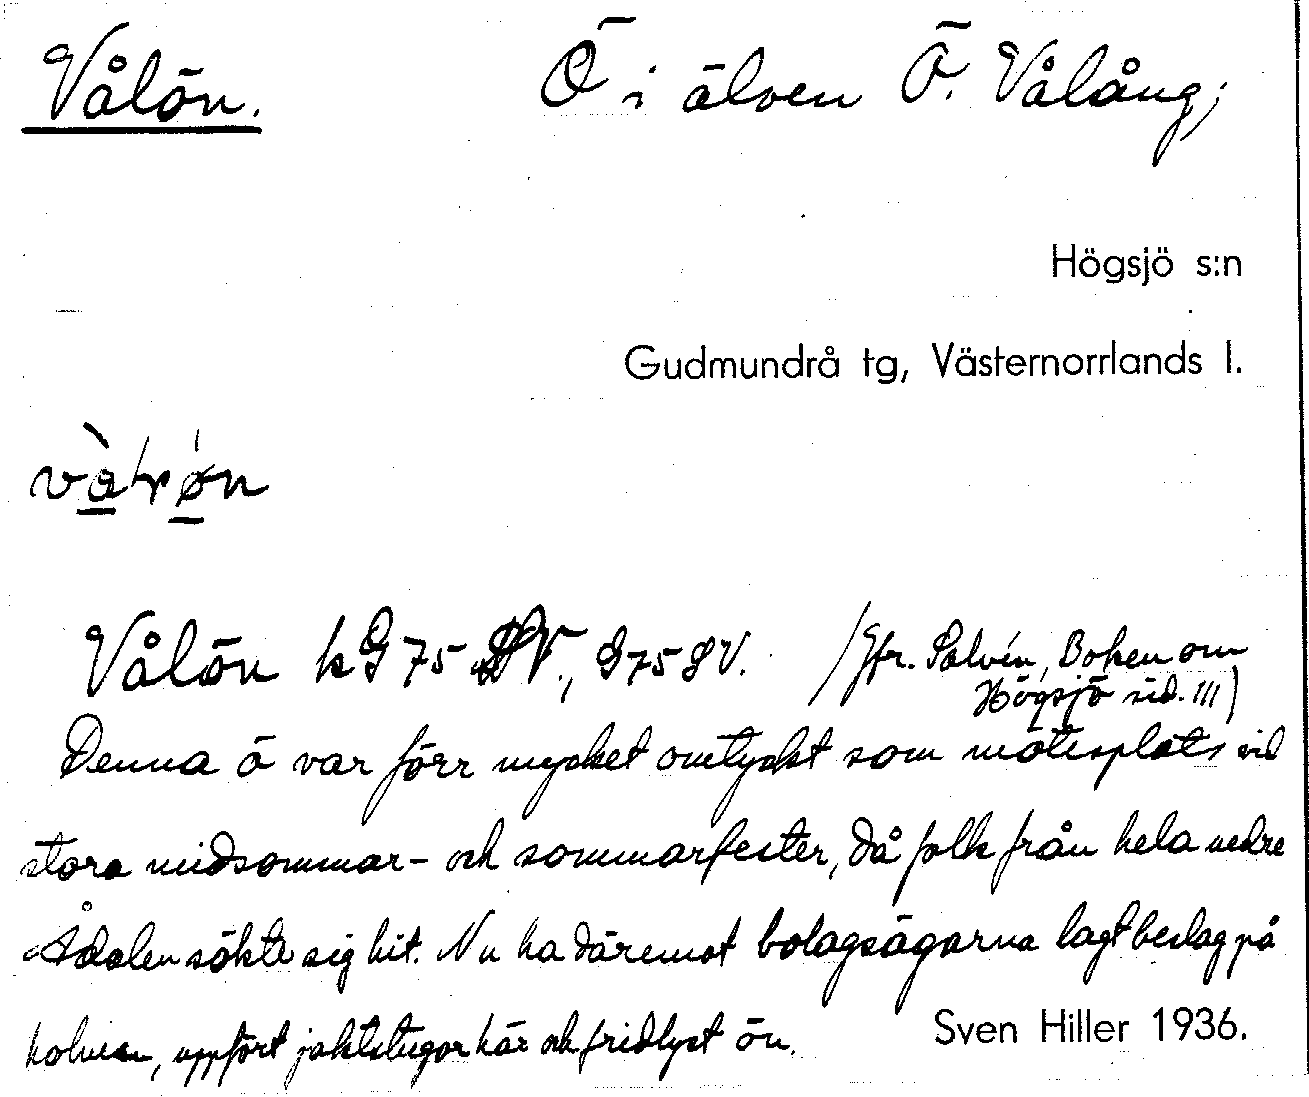 Vålön. Ö i älven Ö. Vålång;
Högsjö s:n
Gudmundrå tg, Västernorrlands l.
Vålön kG75 SV., G75SV. /Jfr. Salvén, Boken om
Högsjö sid. 111)
Denna ö var förr mycket omtyckt som mötesplats vid
stora midsommar- och sommarfester, då folk från hela nedre
Ådalen sökte sig hit. Nu ha däremot bolagsägarna lagt beslag på
holmen, uppfört jaktstugor här och fridlyst ön.
Sven Hiller 1936.